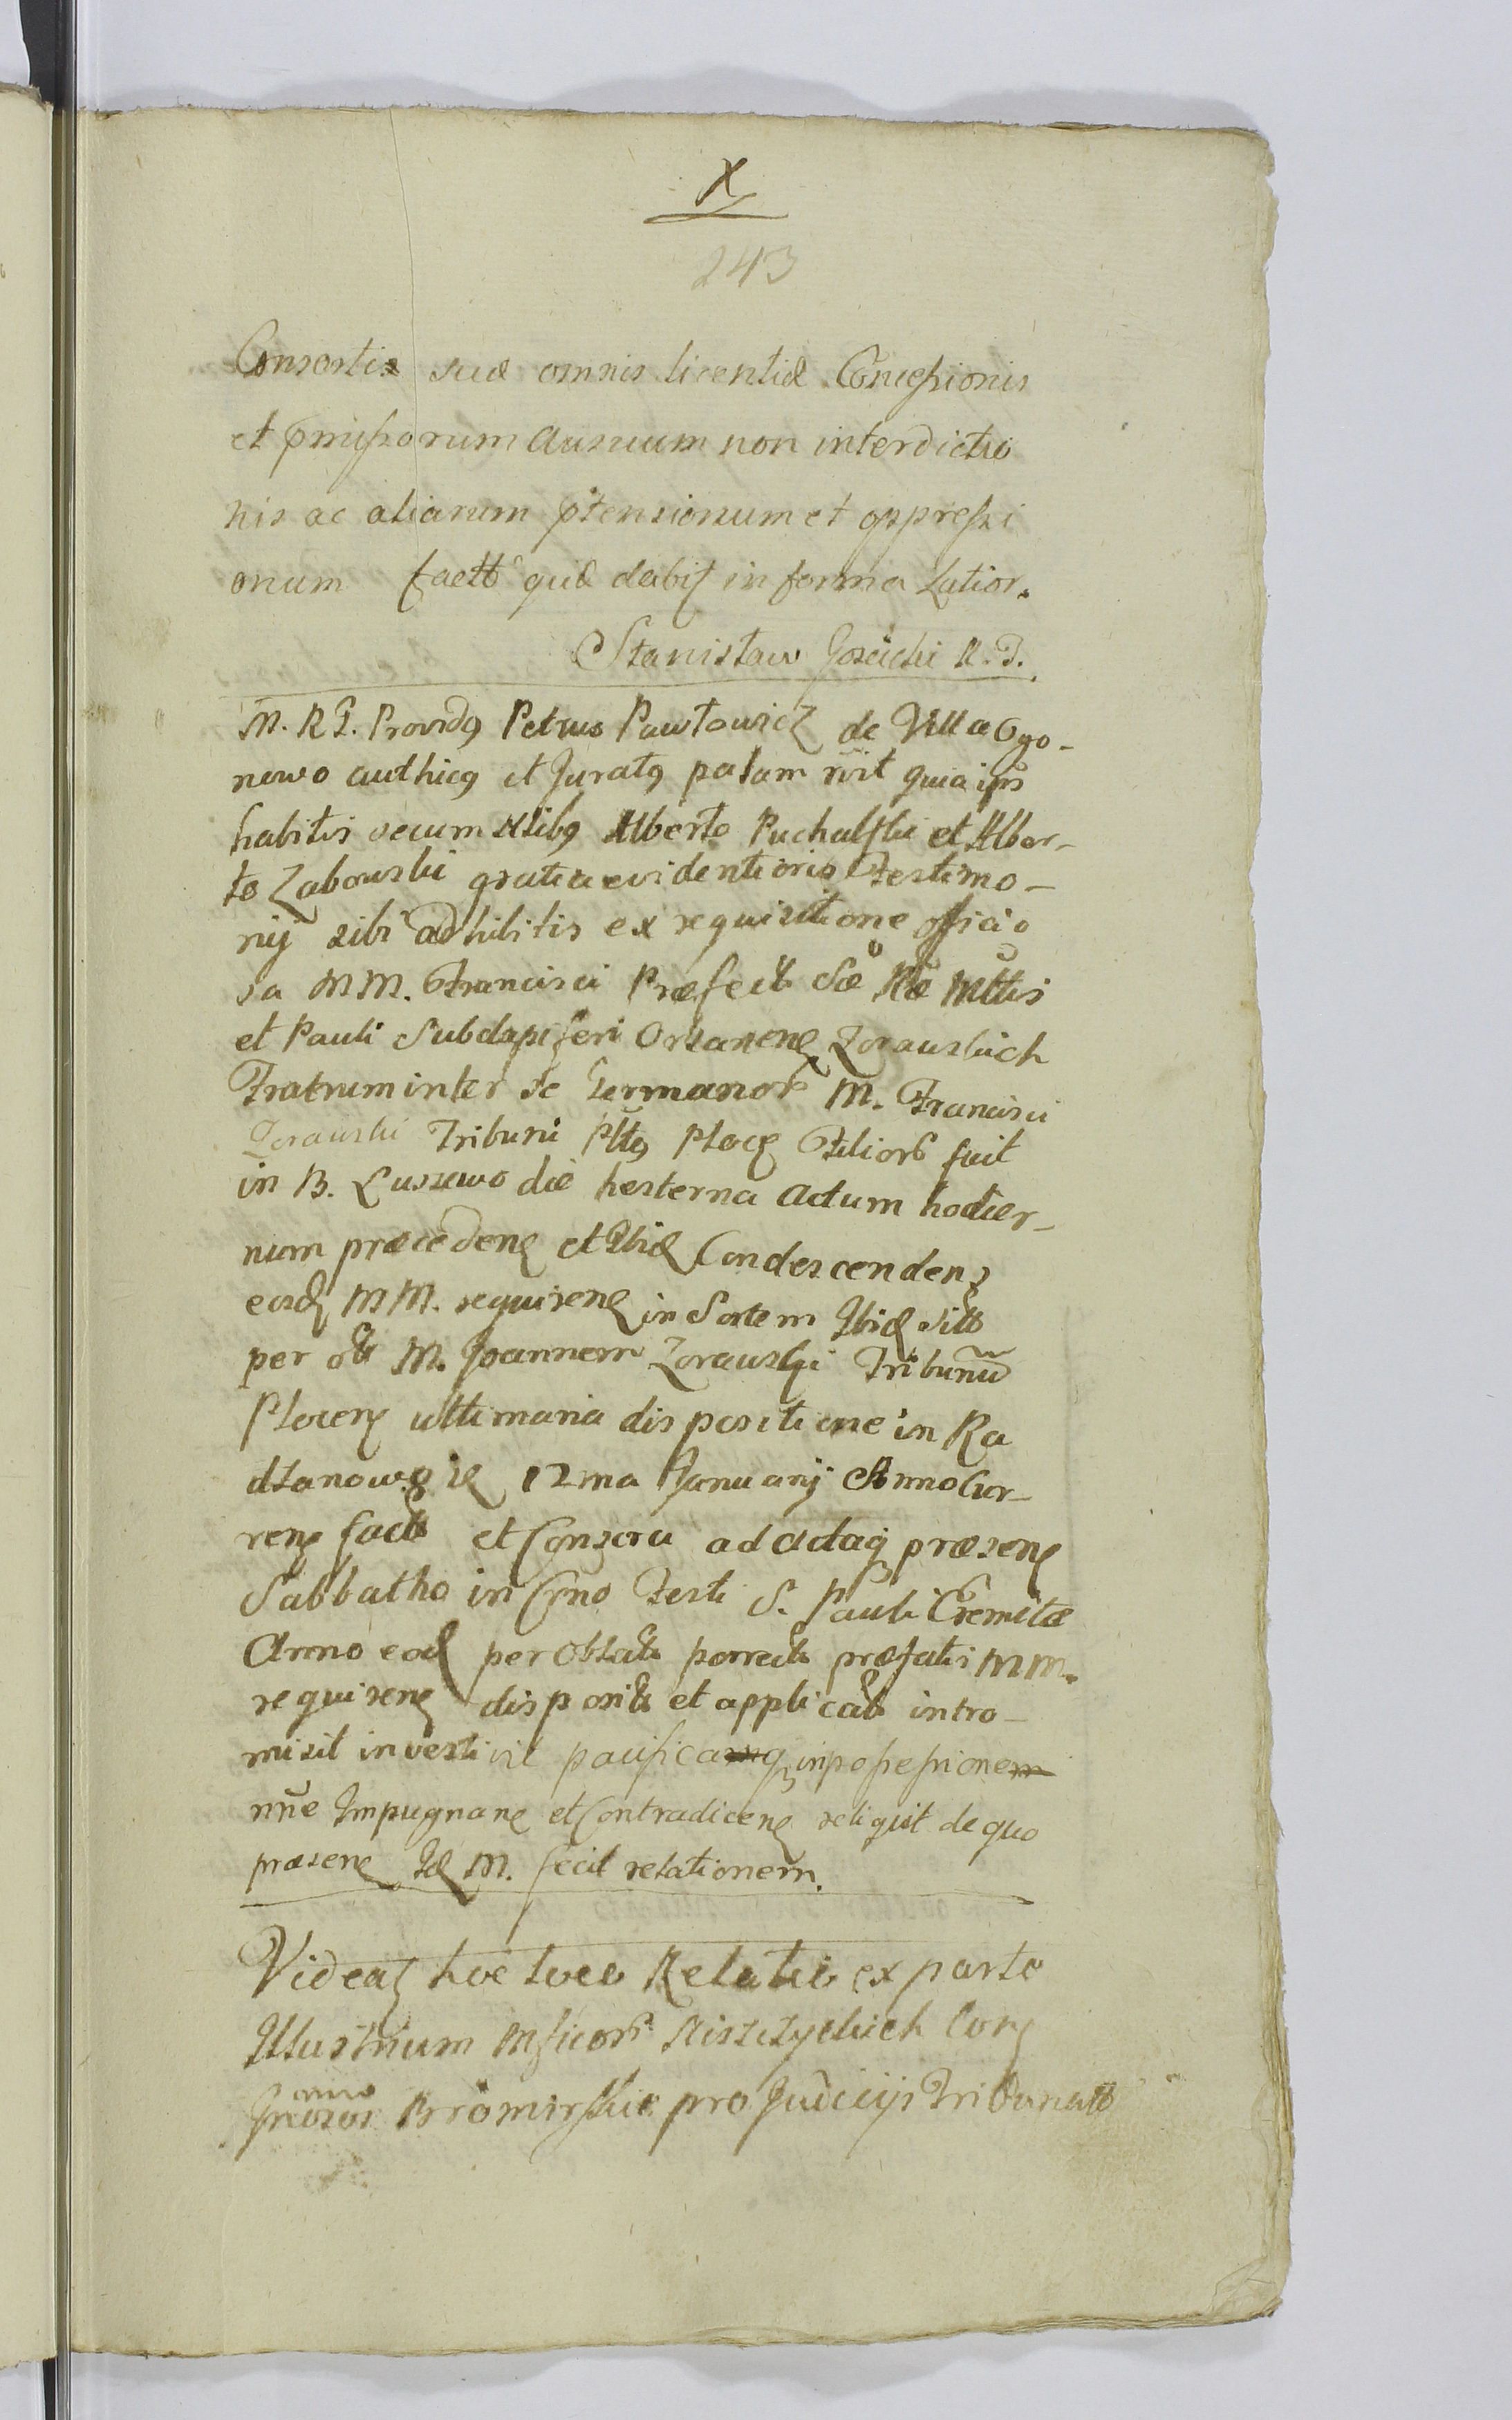 X
243
Consortis suæ omnis licentiæ Concessionis
et pmissorum ausuum non interdictio
nis ac aliarum ptensionum et oppressi
onum factt quæ dabit in forma Latior.
Stanisław R. T.
M. R T. Providq Petrus Pawłowicz de Villa Ogo-
nowo authicq et Juratq palam rvit quia ips
habitis secum Nlibq Alberto Puchalski et Alber-
to Zaborski gratia evidentioris Testimo-
nij sibi adhibitis ex requisitione officio
sa MM. Francisci Præfecti Sæ Ræ Mttis
et Pauli Subdapiferi Orłanenę Zorawskich
Fratrum inter se Germanor M. Francisci
Zorawski Tribuni Pltq Płocę Filiorū fuit
in B. Lussewo die hesterna actum hodier-
num præcedenę et Ibidę Condescendens
eosdę MM. requirenę in Sortem Ibidę sitt
per M. Joannem Zorawski Tribunū
Płocenę ultimaria dispositione in Ra
dzanow 12ma Januarij Anno Cur-
renę factt et ad acta præsenę
Sabbatho in Crno Festi S. Pauli Eremitæ
Anno eodę per oblatt porrectt præfatis MM.
requirenę disposit et applicatt intro-
misit investivit pacificaqz in possessione
mne Impugnanę et Contradicenę reliquit de quo
præsenę Idę M. fecit relationem.
Videatz hoc loco Relatio ex parte
Illustrium Mficorū Niszczyckich Conę
Bromirskie pro Judicijs Tribunatt